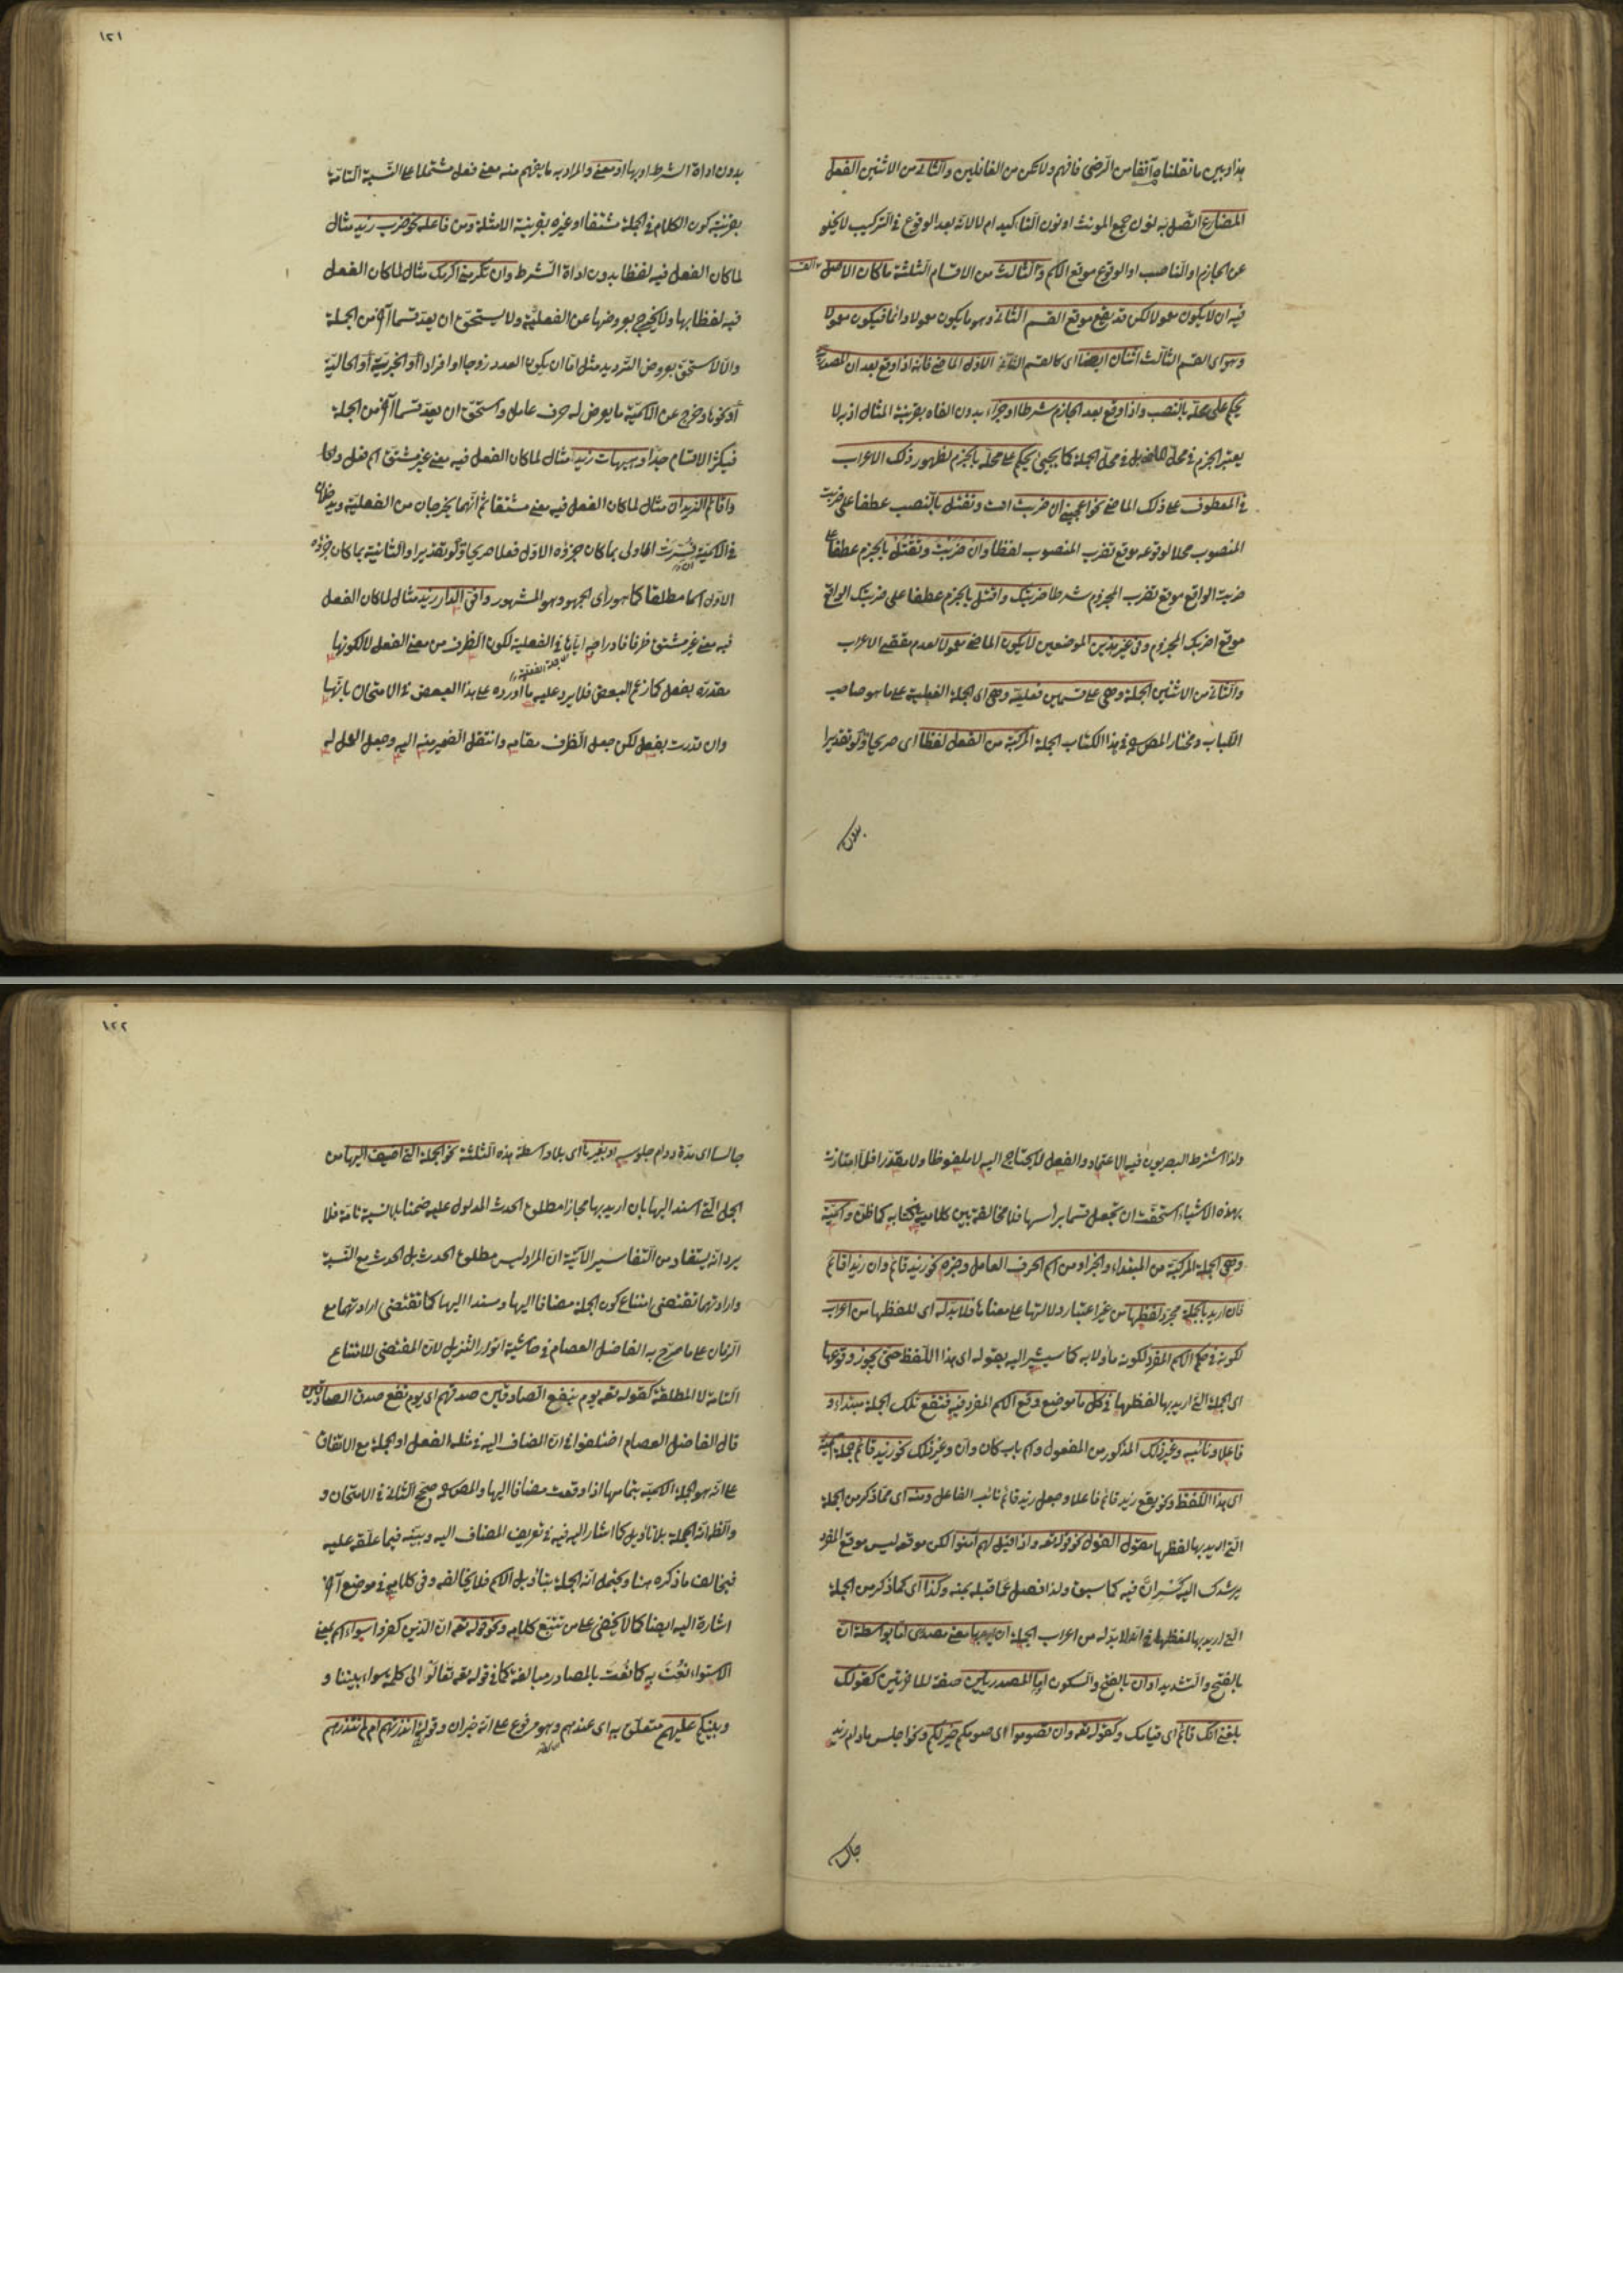 هذا وبين ما نقلناه آنفا من الرضى فافهم ولا تكن من الغافلين والثانى من الاثنين الفعل
المضارع المتصل به نون جمع المونث او نون التاكيد ام لا لانه بعد الوقوع فى التركيب لا يخلو
عن الجازم او الناصب او الوقوع موقع الاسم والثالث من الاقسام الثلثة ما كان الاصل
فيه ان لا يكون معمولا لكن قد يقع موقع القسم الثانى وهو ما يكون معمولا دائما فيكون معمولا
وهو اى القسم الثالث اثنان ايضا اى كالقسم الثانى الاول الماضى فانه اذا وقع بعد ان المصدرية
يحكم على محله بالنصب واذا وقع بعد الجازم شرطا او جزاء بدون الفاء بقرينة المثال اذ بها لا
يعتبر الجزم فى محل الفعل بل فى محل الجملة كما يجيئ يحكم على محله بالجزم لظهور ذلك الاعراب
فى المعطوف على ذلك الماضى نحو اعجبنى ان ضربت انت وتقتل بالنصب عطفا على ضربت
المنصوب محلا لوقوعه موقع تضرب المنصوب لفظا وان ضربت وتقتل بالجزم عطفا على
ضربت الواقع موقع تضرب المجزوم شرطا ضربتك واقتل بالجزم عطفا على ضربتك الواقع
موقع اضربك المجزوم وفى غير هذين الموضعين لا يكون الماضى معمولا لعدم مقتضى الاعراب
والثانى من الاثنين الجملة وهى على قسمين فعلية وهى اى الجملة الفعلية على ما هو صاحب
اللباب ومختار المص فى هذا الكتاب الجملة المركبة من الفعل لفظا اى صريحا او تقديرا
بدون
١٢١
بدون اداة الشرط او بها او معنى والمراد به ما يفهم منه معنى فعل مشتملا على النسبة التامة
بقرينة كون الكلام فى الجملة مشتقا او غيره بقرينة الامثلة ومن فاعله نحو ضرب زيد مثال
لما كان الفعل فيه لفظا بدون اداة الشرط وان تكرمنى اكرمك مثال لما كان الفعل
فيه لفظا بها ولا يخرج بعروضها عن الفعلية ولا يستحق ان يعد قسما آخر من الجملة
والا لاستحق بعروض الترديد مثل اما ان يكون العدد زوجا او فردا او الخبرية او الحالية
او نحوها وخرج عن الاسمية ما يعرض له حرف عامل واستحق ان يعد قسما آخر من الجملة
فيكثر الاقسام جدا وهيهات زيد مثال لما كان الفعل فيه معنى غير مشتق اسم فعل
واقائم الزيدان مثال لما كان الفعل فيه معنى مشتقا ثم انهما يخرجان من الفعلية ويدخلان
فى الاسمية ان فسرت الاولى بما كان جزؤه الاول فعلا صريحا او تقديرا والثانية بما كان جزؤه
الاول اسما مطلقا كما هو رأى الجمهور وهو المشهور وافى الدار زيد مثال لما كان الفعل
فيه معنى غير مشتق ظرفا فادراجه اياها فى الفعلية لكون الظرف من معنى الفعل لا لكونها
مقدرة بفعل كما زعم البعض فلا يرد عليه ما اورده على هذا البعض فى الامتحان بانها
وان قدرت بفعل لكن جعل الظرف مقامه وانتقل الضمير منه اليه وجعل العمل له
ولذا اشترط البصريون فيه الاعتماد والفعل لا يحتاج اليه لا ملفوظا ولا مقدرا فلما امتازت
بهذه الاشياء استحقت ان تجعل قسما برأسها فلا مخالفة بين كلاميه فى كتابيه كما ظن واسمية
وهى الجملة المركبة من المبتداء والخبر او من اسم الحرف العامل وخبره نحو زيد قائم وان زيدا قائم
فان اريد بالجملة مجرد لفظها من غير اعتبار دلالتها على معناها فلا بد له اى للفظها من اعراب
لكونه فى حكم الاسم المفرد لكونه مأولا به كما سيشير اليه بقوله اى هذا اللفظ حتى يجوز وقوعها
اى الجملة التى اريد بها لفظها فى كل ما موضع وقع الاسم المفرد فيه فتقع تلك الجملة مبتداء و
فاعلا ونائبه وغير ذلك المذكور من المفعول واسم باب كان وان وغير ذلك نحو زيد قائم جملة اسمية
اى هذا اللفظ ونحو يقع زيد قائم فاعلا وجعل زيد قائم نائب الفاعل ومنه اى مما ذكر من الجملة
التى اريد بها لفظها مقول القول نحو قوله تعه واذا قيل لهم آمنوا لكن موقعه ليس موقع المفرد
يرشدك اليه كسر ان فيه كما سبق ولذا فصل عما قبله بمنه وكذا اى كما ذكر من الجملة
التى اريد بها لفظها فى انه لا بد له من اعراب الجملة ان اريد بها معنى مصدرى اما بواسطة ان
بالفتح والتشديد او ان بالفتح والسكون او ما المصدريتين صفة للاخرتين كقولك
بلغنى انك قائم اى قيامك وكقوله تعه وان تصوموا اى صومكم خير لكم ونحو اجلس ما دام زيد
جالسا
١٢٢
جالسا اى مدة دوام جلوسه او بغيرها اى بلا واسطة هذه الثلثة نحو الجملة التى اضيف اليها من
الجمل التى اسند اليها بان اريد بها مجازا مطلق الحدث المدلول عليه ضمنا بلا نسبة تامة فلا
يرد انه يستفاد من التفاسير الآتية ان المراد ليس مطلق الحدث بل الحدث مع النسبة
وارادتها تقتضى امتناع كون الجملة مضافا اليها ومسندا اليها كما تقتضى ارادتها مع
الزمان على ما صرح به الفاضل العصام فى حاشية انوار التنزيل لان المقتضى للامتناع
التامة لا المطلقة كقوله تعه يوم ينفع الصادقين صدقهم اى يوم نفع صدق الصادقين
قال الفاضل العصام اختلفوا فى ان المضاف اليه فى مثله الفعل او الجملة مع الاتفاق
على انه هو الجملة الاسمية بتمامها اذا وقعت مضافا اليها والمص صحح الثانى فى الامتحان و
والظ انه الجملة بلا تأويل كما اشار اليه فيه فى تعريف المضاف اليه وبينه فيما علقه عليه
فيخالف ما ذكره هنا ويحتمل انه الجملة بتأويل الاسم فلا يخالفه وفى كلامه فى موضع آخر
اشارة اليه ايضا كما لا يخفى على من تتبع كلامه ونحو قوله تعه ان الذين كفروا سواء اسم بمعنى
الاستواء نعت به كما نعت بالمصادر مبالغة كما فى قوله تعه تعالوا الى كلمة سواء بيننا و
وبينكم عليهم متعلق به اى عندهم وهو مرفوع على انه خبر ان وقوله ءانذرتهم ام لم تنذرهم